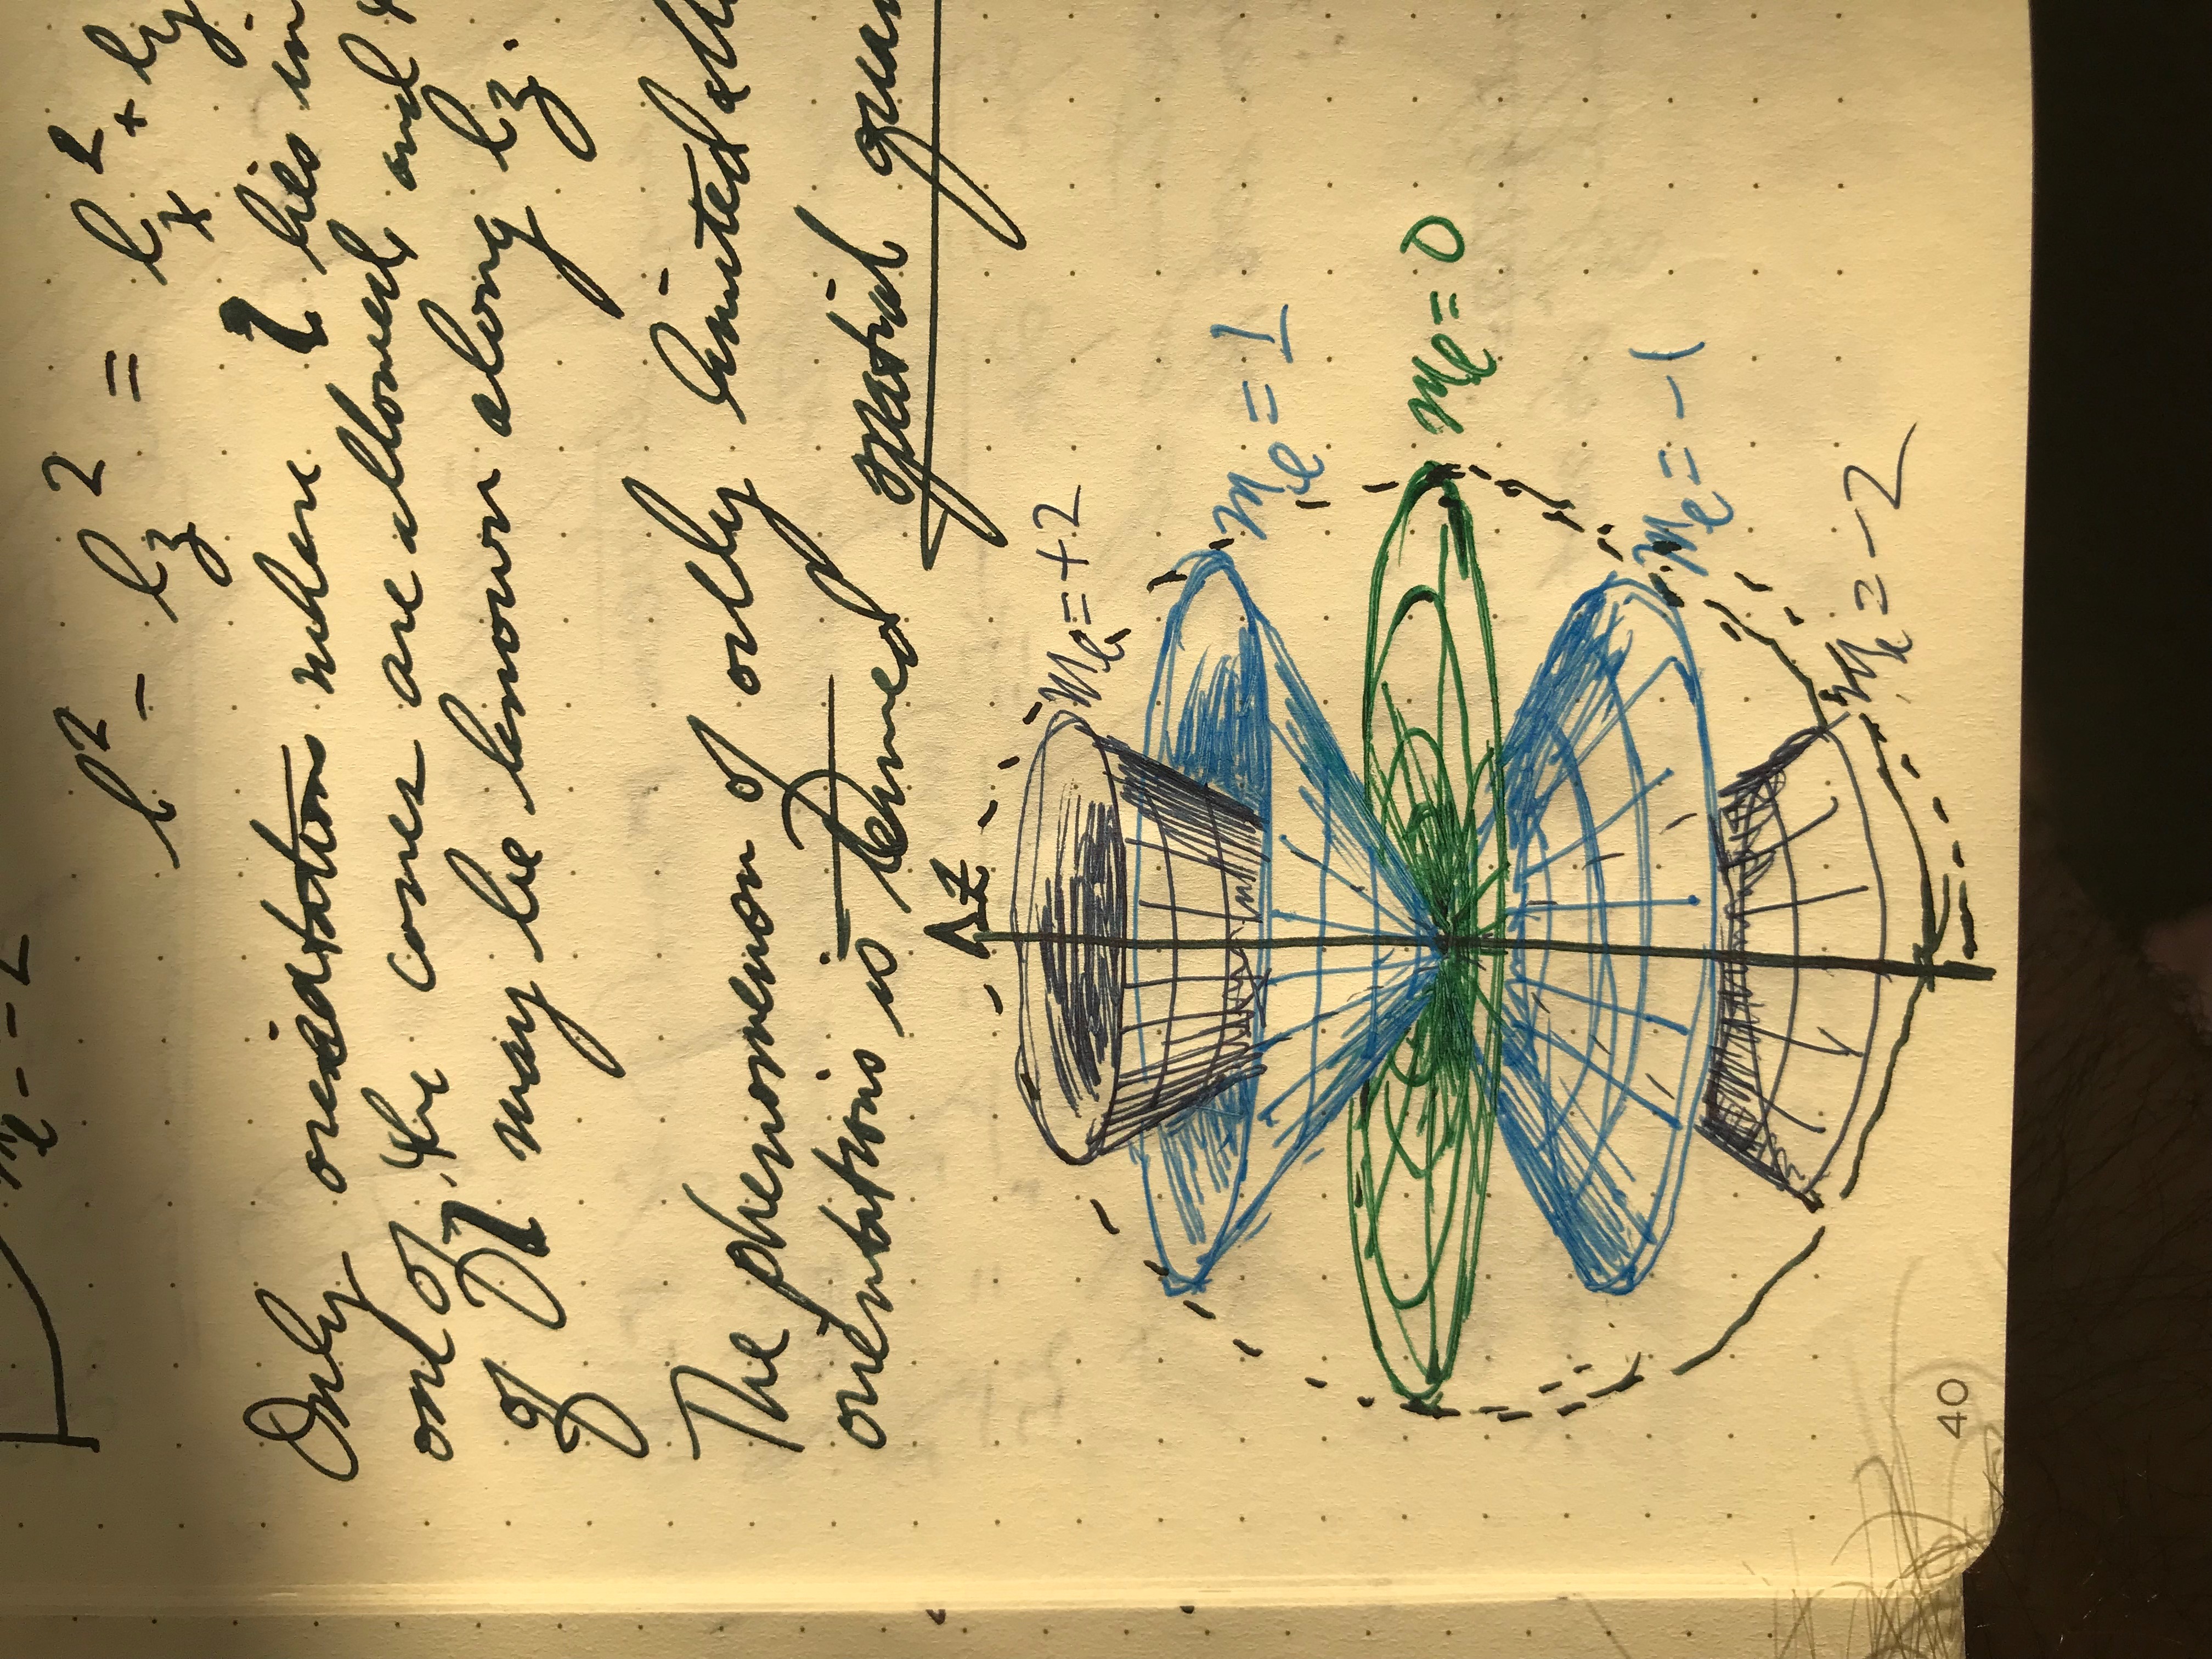 mℓ = -2
l² - l_z² = l_x² + l_y
Only orientations where l lies in
one of the cones are allowed, and
of l may be known along l_z.
The phenomenon of only limited
orientations is termed spatial quan
z
mℓ = +2
mℓ = 1
mℓ = 0
mℓ = -1
mℓ = -2
40